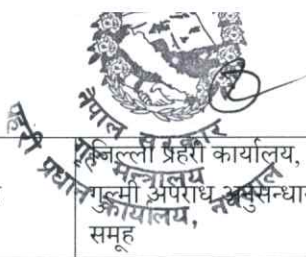 नेपाल सरकार
गृह मन्त्रालय
प्रहरी प्रधान कार्यालय, नक्साल
जिल्ला प्रहरी कार्यालय,
गुल्मी अपराध अनुसन्धान
समूह